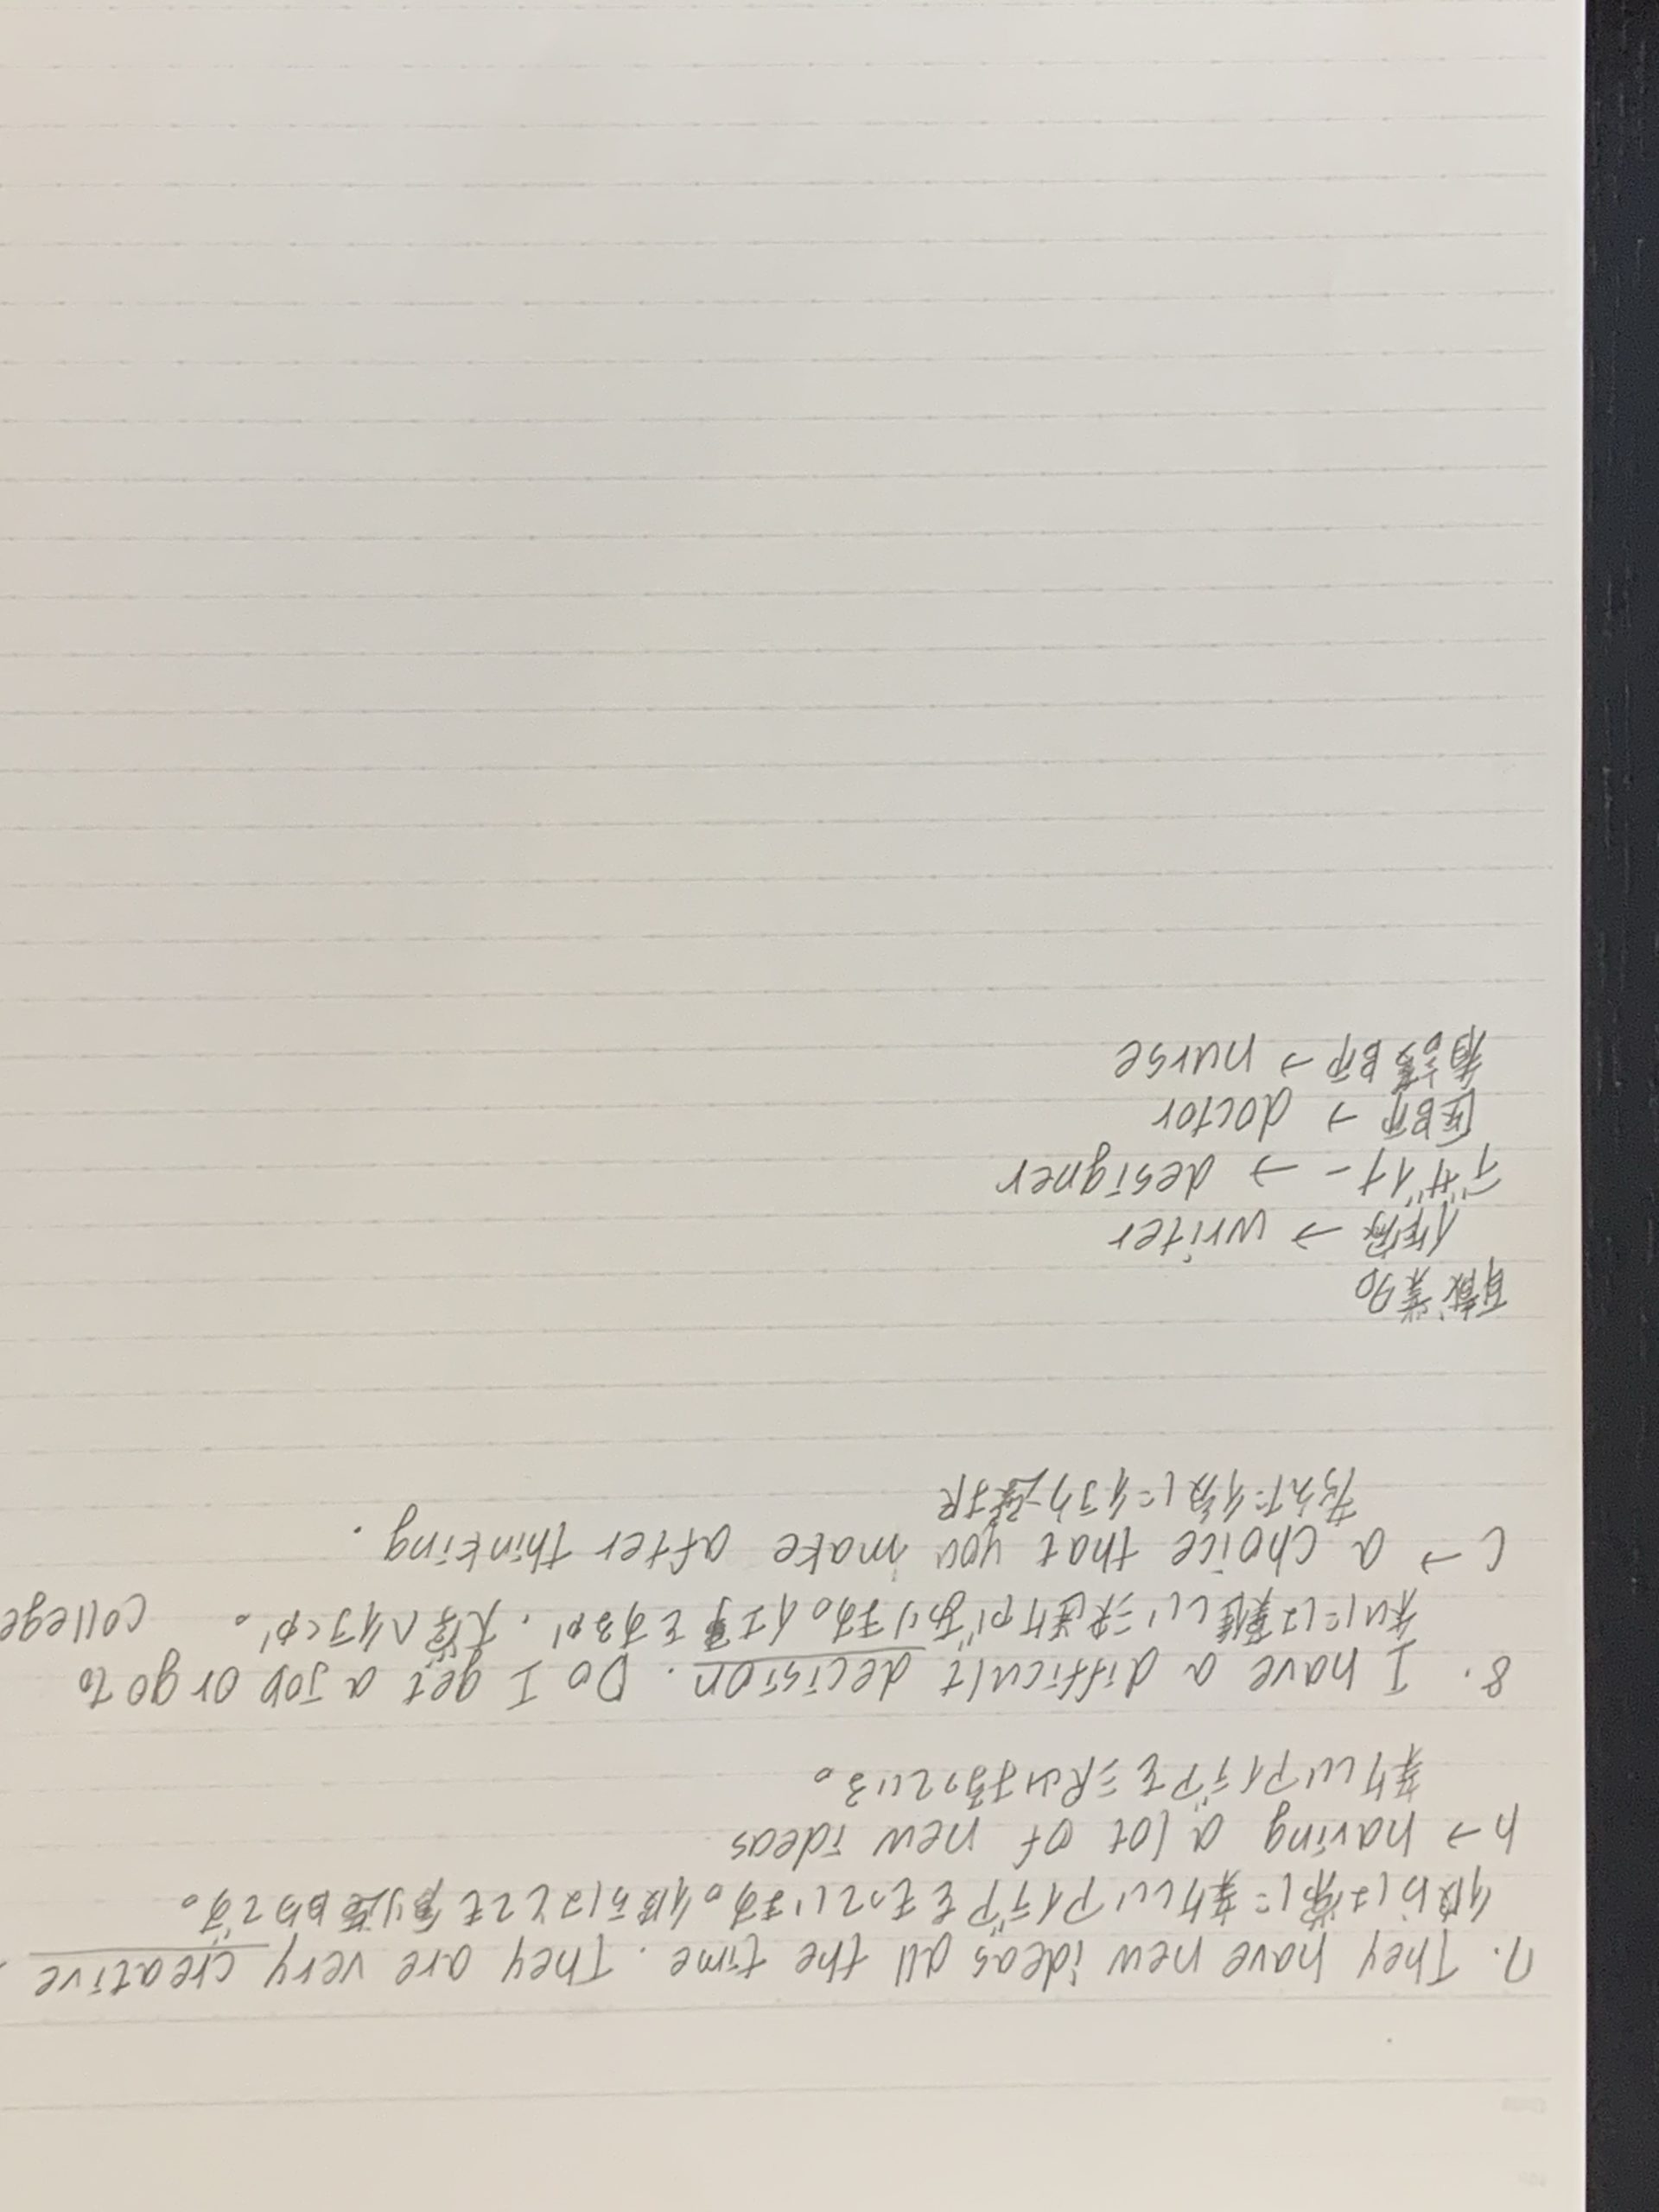 7. They have new ideas all the time. They are very creative.
彼らは常に新しいアイデアをもっています。彼らはとても創造的です。
h → having a lot of new ideas
新しいアイデアを沢山持っている。
8. I have a difficult decision. Do I get a job or go to college
私には難しい決断があります。仕事をするか、大学へ行くか。
c → a choice that you make after thinking.
考えた後に行う選択
職業名
作家 → writer
デザイナー → designer
医師 → doctor
看護師 → nurse